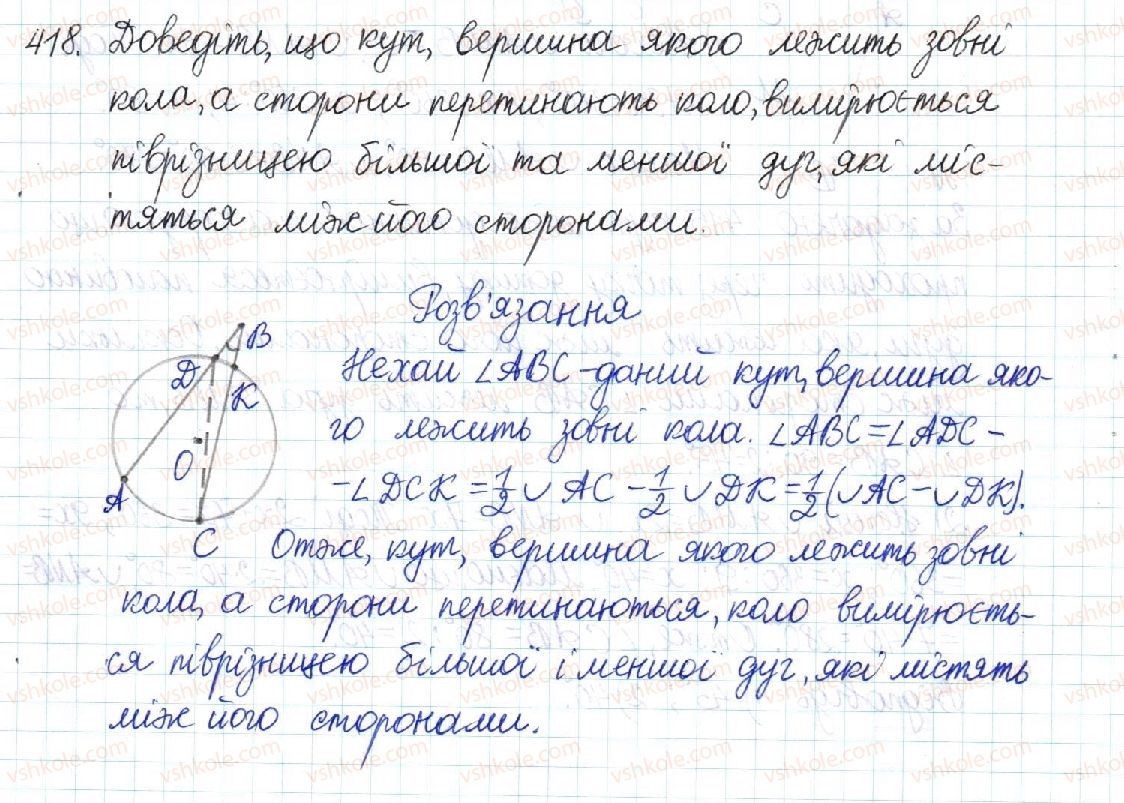 418. Доведіть, що кут, вершина якого лежить зовні
кола, а сторони перетинають коло, вимірюється
піврізницею більшої та меншої дуг, які міс-
тяться між його сторонами.
Розв'язання
B
D
K
O
A
C
Нехай ∠ABC - даний кут, вершина яко-
го лежить зовні кола. ∠ABC = ∠ADC -
- ∠DCK = 1/2 ∪ AC - 1/2 ∪ DK = 1/2 (∪ AC - ∪ DK).
Отже, кут, вершина якого лежить зовні
кола, а сторони перетинаються, коло вимірюєть-
ся піврізницею більшої і меншої дуг, які містять
між його сторонами.